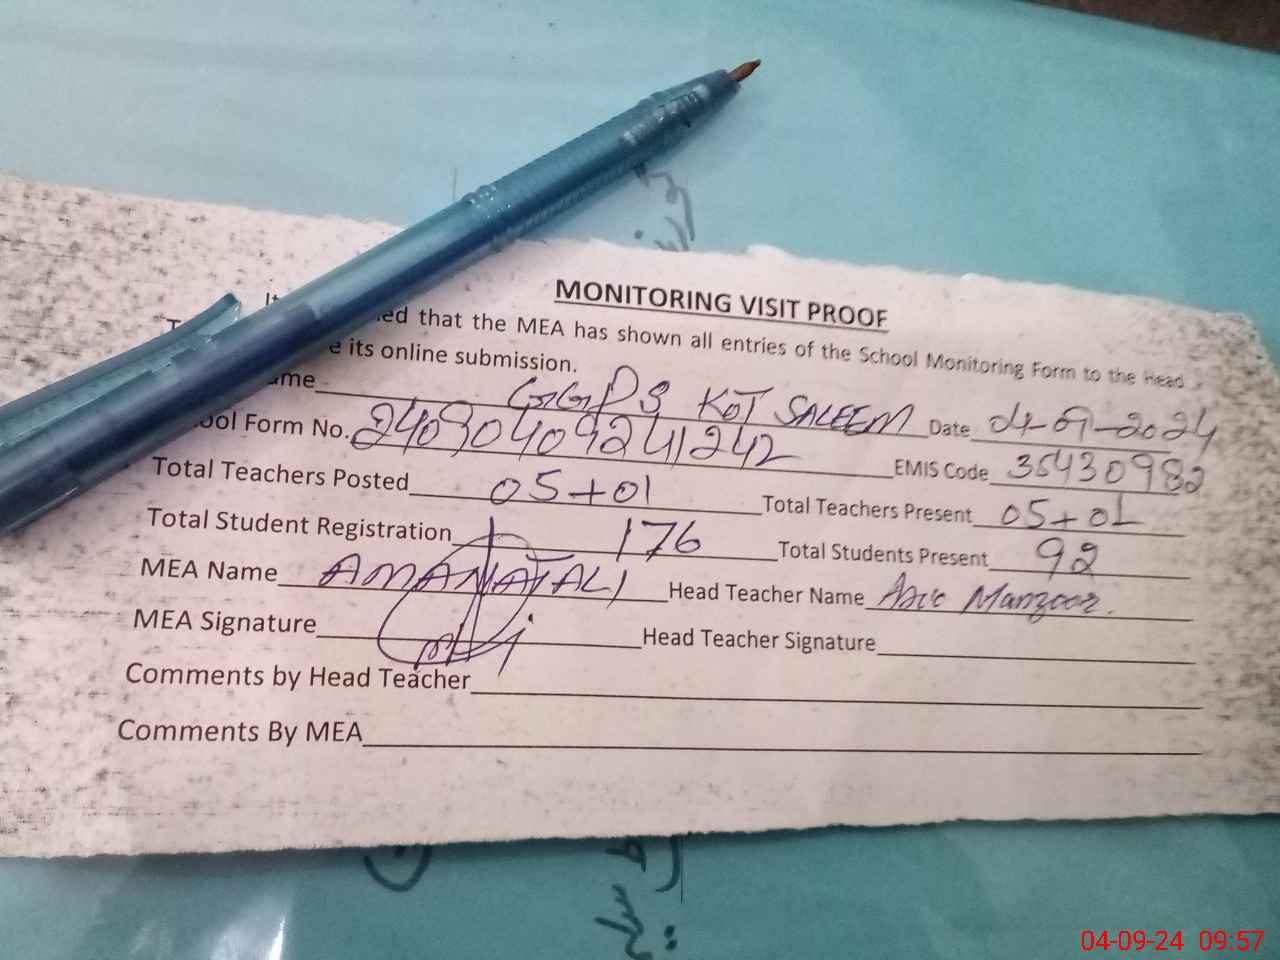 MONITORING VISIT PROOF
ed that the MEA has shown all entries of the School Monitoring Form to the Head
its online submission.
GGPS KOT SALEEM Date 04-09-2024
Form No. 2409040924 1242 EMIS Code 35430982
Total Teachers Posted 05+01 Total Teachers Present 05+01
Total Student Registration 176 Total Students Present 92
MEA Name AMANAT ALI Head Teacher Name Manzoor.
MEA Signature Head Teacher Signature
Comments by Head Teacher
Comments By MEA
04-09-24 09:57